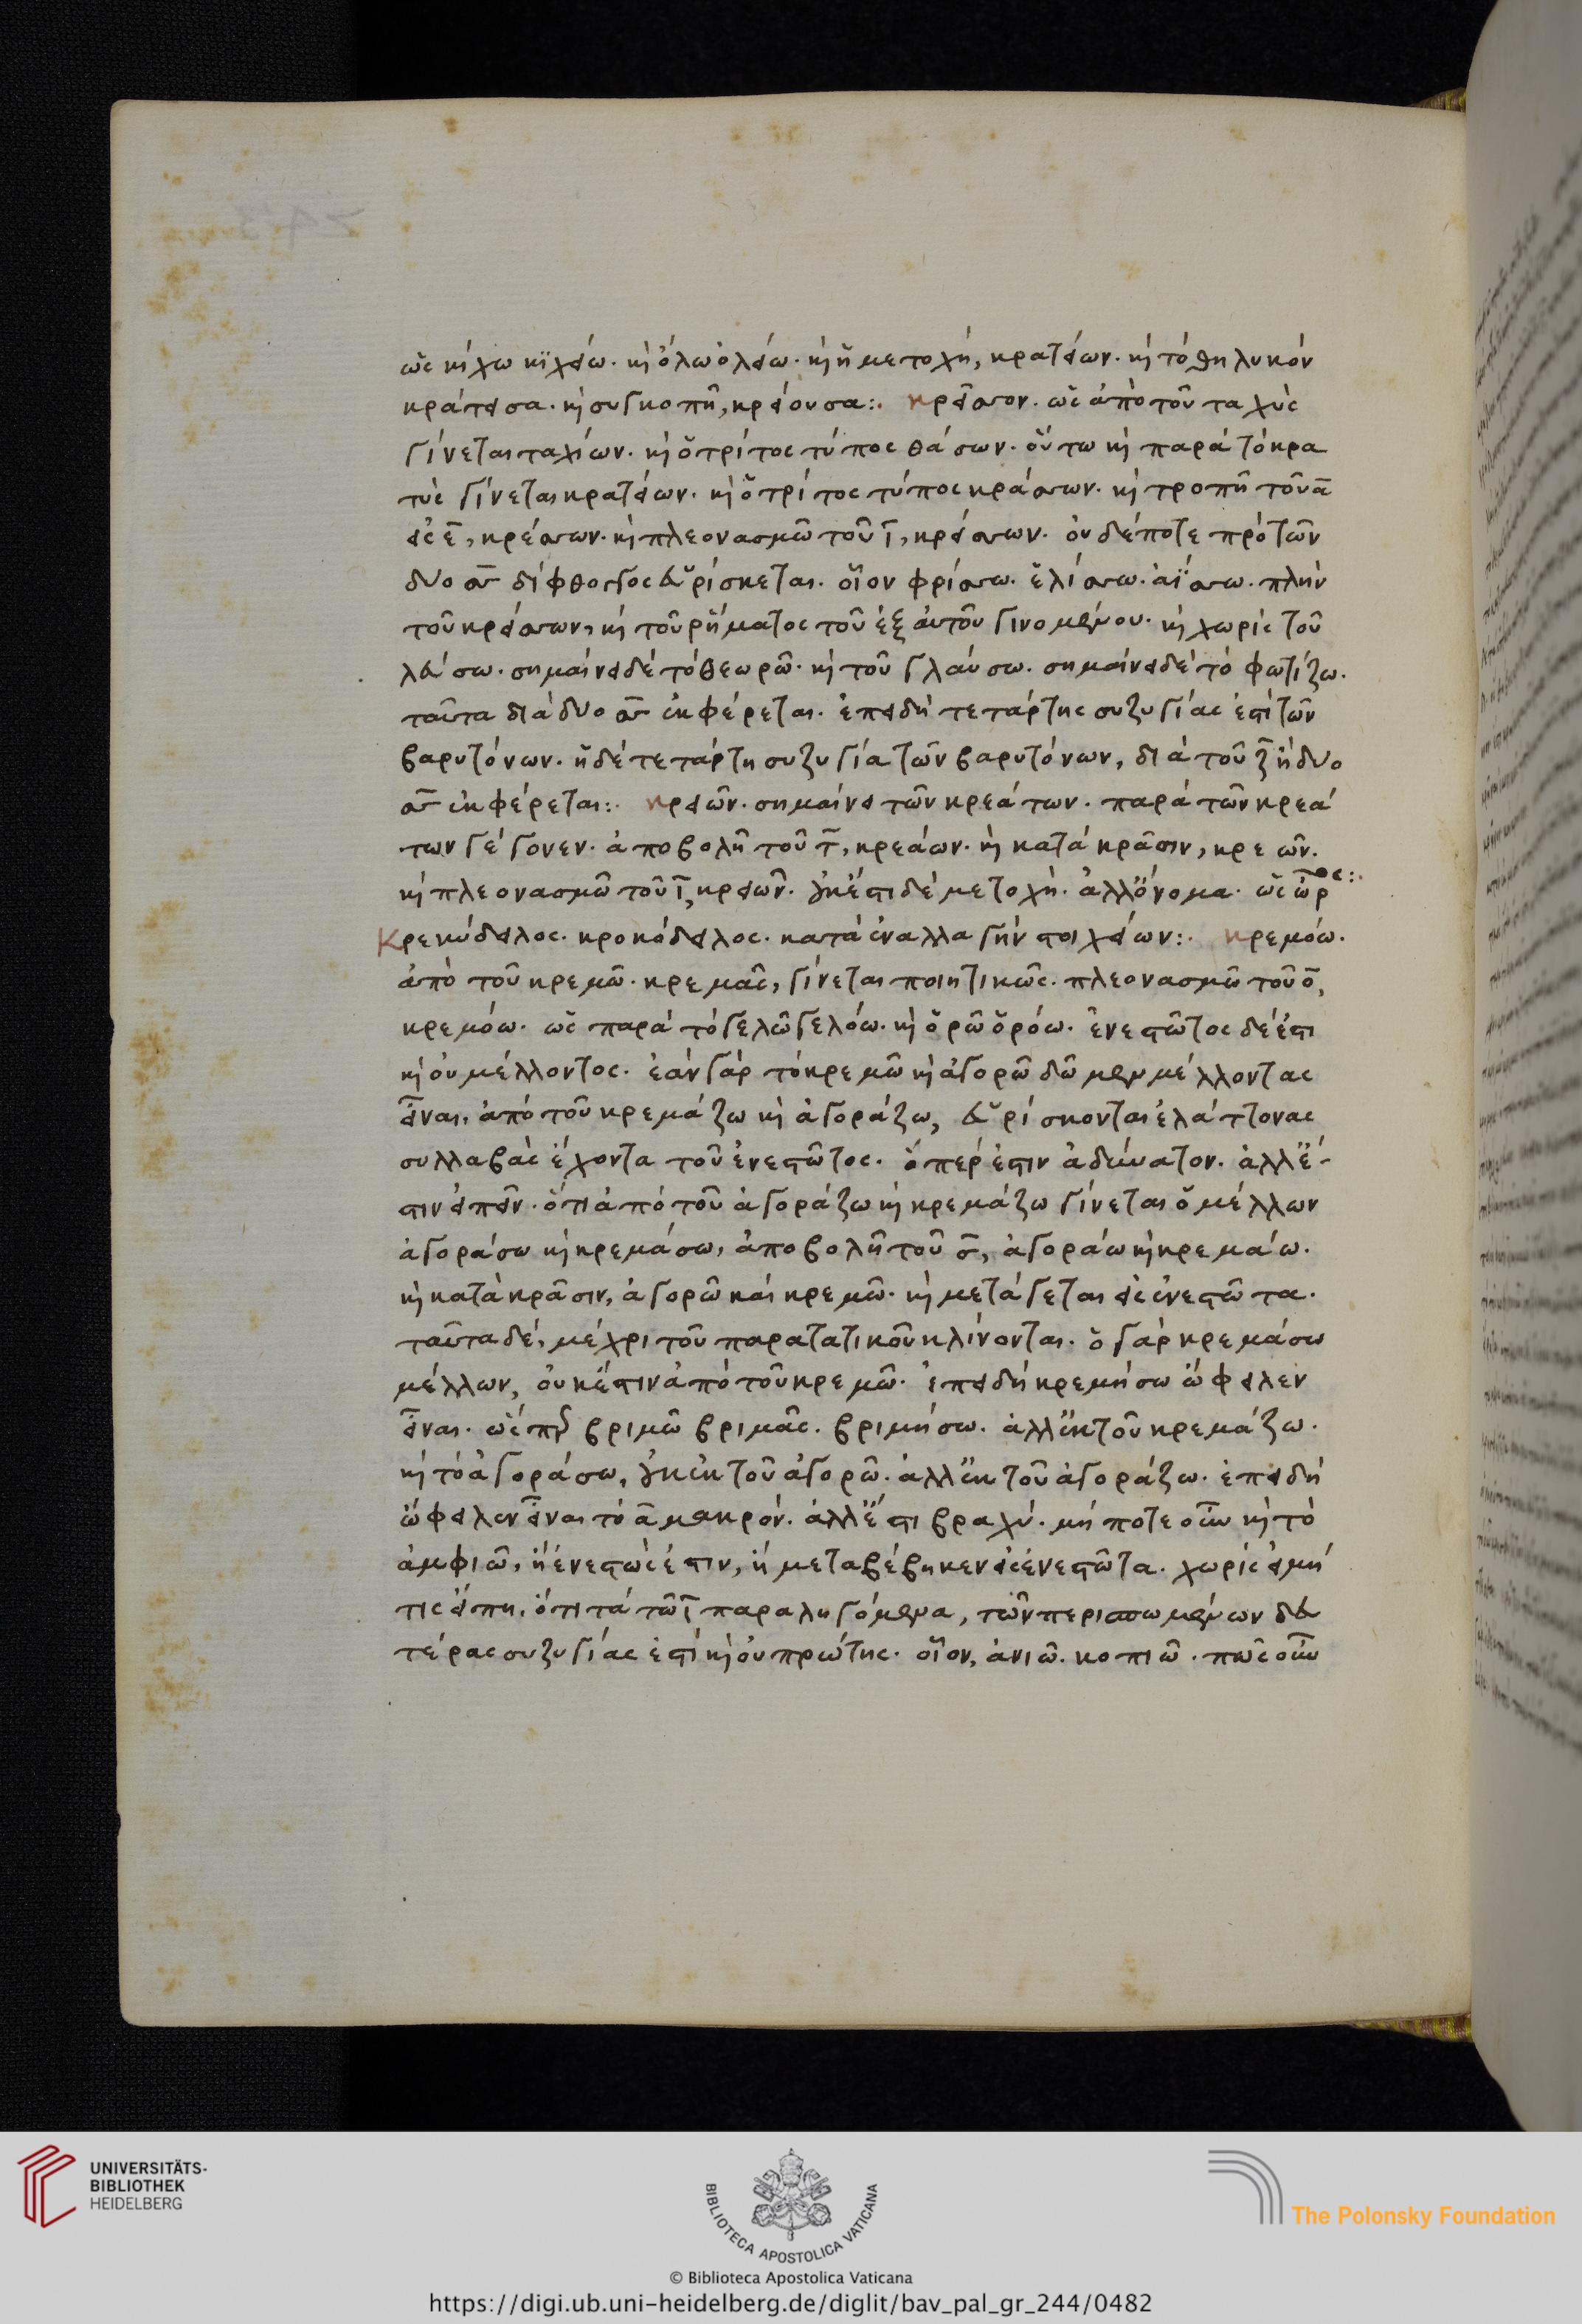 ὡς κίχω κιχείω. καὶ ὄλω ὀλείω. καὶ ἡ μετοχή, κρατείων. καὶ τὸ θηλυκόν
κράτεισα. καὶ συγκοπῆ, κρείουσα:. κρεῖσσον. ὡς ἀπὸ τοῦ ταχὺς
γίνεται ταχίων. καὶ ὁ τρίτος τύπος θάσων. οὕτω καὶ παρὰ τὸ κρα
τὺς γίνεται κρατείων. καὶ ὁ τρίτος τύπος κράσσων. καὶ τροπῆ τοῦ α
εἰς ε, κρέσσων. καὶ πλεονασμῶ τοῦ ι, κρείσσων. οὐδέποτε πρὸ τῶν
δύο σσ δίφθογγος εὑρίσκεται. οἷον φρίσσω. ἑλίσσω. ἀΐσσω. πλὴν
τοῦ κρείσσων, καὶ τοῦ ῥήματος τοῦ ἐξ αὐτοῦ γινομένου. καὶ χωρὶς τοῦ
λεύσω. σημαίνει δὲ τὸ θεωρῶ. καὶ τοῦ γλαύσω. σημαίνει δὲ τὸ φωτίζω.
ταῦτα διὰ δύο σσ ἐκφέρεται. ἐπειδὴ τετάρτης συζυγίας ἐστὶ τῶν
βαρυτόνων. ἡ δὲ τετάρτη συζυγία τῶν βαρυτόνων, διὰ τοῦ ζ ἢ δύο
σσ ἐκφέρεται:. κρειῶν. σημαίνει τῶν κρεάτων. παρὰ τῶν κρεά
των γέγονεν. ἀποβολῆ τοῦ τ, κρεάων. καὶ κατὰ κρᾶσιν, κρεῶν.
καὶ πλεονασμῶ τοῦ ι, κρειῶν. οὐκ ἔστι δὲ μετοχή. ἀλλ' ὄνομα. ὡς ὦρος:.
Κρεκύδειλος. κροκόδειλος. κατὰ ἐναλλαγὴν στοιχείων:. κρεμόω.
ἀπὸ τοῦ κρεμῶ. κρεμᾶς, γίνεται ποιητικῶς. πλεονασμῶ τοῦ ο,
κρεμόω. ὡς παρὰ τὸ γελῶ γελόω. καὶ ὁρῶ ὁρόω. ἐνεστῶτος δέ ἐστι
καὶ οὐ μέλλοντος. ἐὰν γὰρ τὸ κρεμῶ καὶ ἀγορῶ δῶμεν μέλλοντας
εἶναι, ἀπὸ τοῦ κρεμάζω καὶ ἀγοράζω, εὑρίσκονται ἐλάττονας
συλλαβὰς ἔχοντα τοῦ ἐνεστῶτος. ὅπερ ἐστὶν ἀδύνατον. ἀλλ' ἔ-
στιν εἰπεῖν. ὅτι ἀπὸ τοῦ ἀγοράζω καὶ κρεμάζω γίνεται ὁ μέλλων
ἀγοράσω καὶ κρεμάσω, ἀποβολῆ τοῦ σ, ἀγοράω καὶ κρεμαάω.
καὶ κατὰ κρᾶσιν, ἀγορῶ καὶ κρεμῶ. καὶ μετάγεται εἰς ἐνεστῶτα.
ταῦτα δὲ, μέχρι τοῦ παρατατικοῦ κλίνονται. ὁ γὰρ κρεμάσω
μέλλων, οὐκ ἔστιν ἀπὸ τοῦ κρεμῶ. ἐπειδὴ κρεμήσω ὤφειλεν
εἶναι. ὥσπερ βριμῶ βριμᾶς. βριμήσω. ἀλλ' ἐκ τοῦ κρεμάζω.
καὶ τὸ ἀγοράσω, οὐκ ἐκ τοῦ ἀγορῶ. ἀλλ' ἐκ τοῦ ἀγοράζω. ἐπειδὴ
ὤφειλεν εἶναι τὸ α μακρόν. ἀλλ' ἔστι βραχύ. μήποτε οὖν καὶ τὸ
ἀμφιῶ, ἢ ἐνεστώς ἐστιν, ἢ μεταβέβηκεν εἰς ἐνεστῶτα. χωρὶς εἰ μή
τις εἴπη, ὅτι τὰ τῶ ι παραληγόμενα, τῶν περισπωμένων δευ
τέρας συζυγίας ἐστὶ καὶ οὐ πρώτης. οἷον, ἀνιῶ. κοπιῶ. πῶς οὖν
UNIVERSITÄTS-
BIBLIOTHEK
HEIDELBERG
BIBLIOTECA APOSTOLICA VATICANA
The Polonsky Foundation
© Biblioteca Apostolica Vaticana
https://digi.ub.uni-heidelberg.de/diglit/bav_pal_gr_244/0482